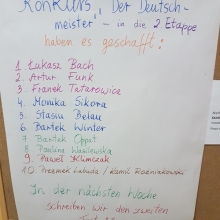 Konkurs „Der Deutsch-
meister" - in die 2 Etappe
haben es geschafft:
1 Łukasz Bach
2. Artur Funk
3. Franek Tatarowicz
4. Monika Sikora
5. Stasiu Belau
6 Bartek Winter
7 Bartek Oppat
8 Paulina Wasilewska
9 Paweł Klimczak
10 Przemek Labuda / Kamil
In der nächsten Woche
schreiben wir den zweiten